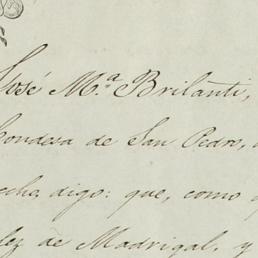 José M.ª Brilanti,
Condesa de San Pedro,
echo, digo: que, como
lez de Madrigal, y